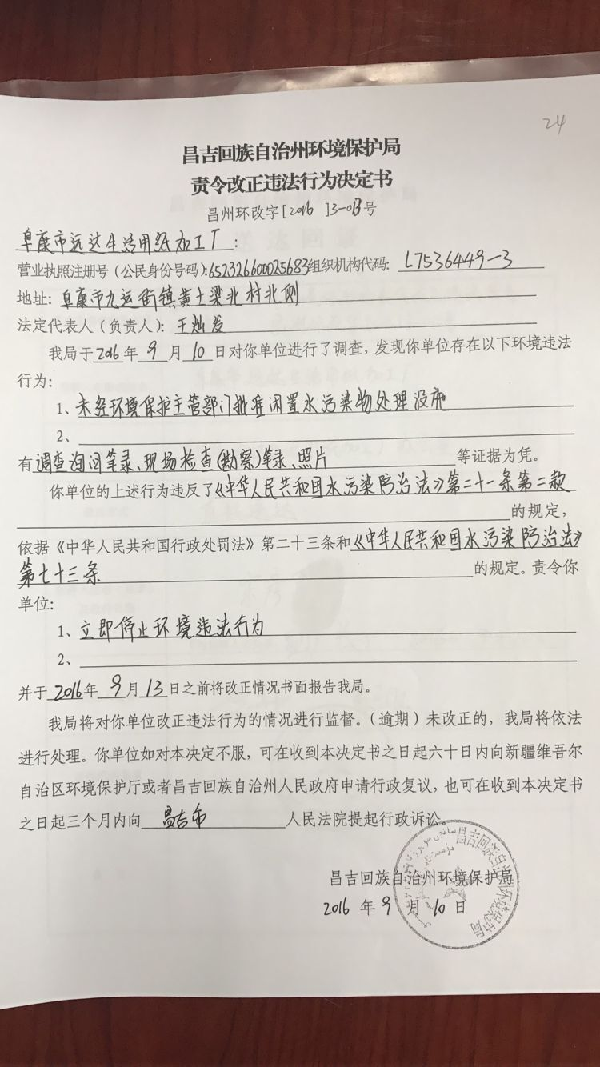 24
昌吉回族自治州环境保护局
责令改正违法行为决定书
昌州环改字[2016]3-03号
阜康市远达生活用纸加工厂：
营业执照注册号（公民身份号码）：652326600025683组织机构代码：L7536449-3
地址：阜康市九运街镇黄土梁北村北侧
法定代表人（负责人）：王灿发
我局于2016年9月10日对你单位进行了调查，发现你单位存在以下环境违法
行为：
1、未经环境保护主管部门批准闲置水污染物处理设施
2、
有调查询问笔录、现场检查(勘察)笔录、照片等证据为凭。
你单位的上述行为违反了《中华人民共和国水污染防治法》第二十一条第二款
的规定，
依据《中华人民共和国行政处罚法》第二十三条和《中华人民共和国水污染防治法》
第七十三条的规定。责令你
单位：
1、立即停止环境违法行为
2、
并于2016年9月13日之前将改正情况书面报告我局。
我局将对你单位改正违法行为的情况进行监督。（逾期）未改正的，我局将依法
进行处理。你单位如对本决定不服，可在收到本决定书之日起六十日内向新疆维吾尔
自治区环境保护厅或者昌吉回族自治州人民政府申请行政复议，也可在收到本决定书
之日起三个月内向昌吉市人民法院提起行政诉讼。
昌吉回族自治州环境保护局
2016年9月10日
昌吉回族自治州环境保护局